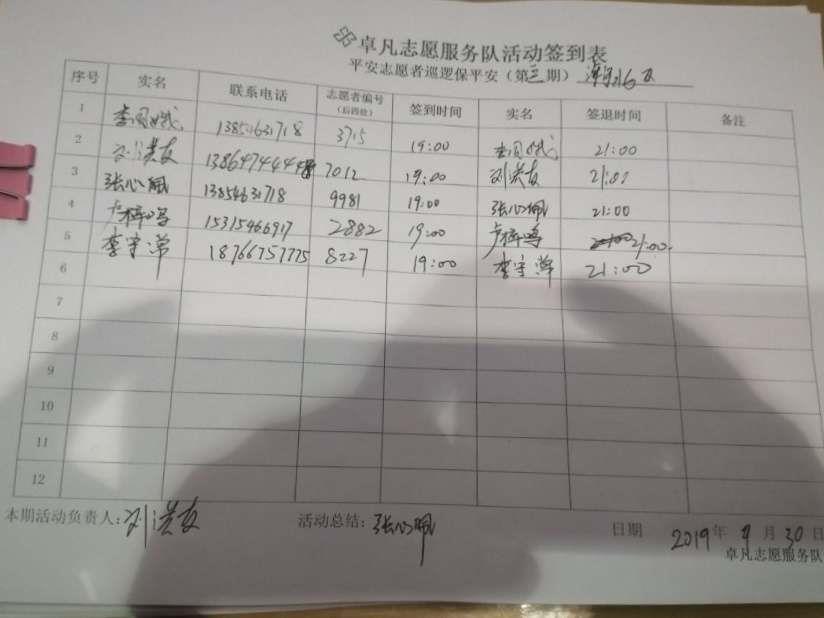 卓凡志愿服务队活动签到表
平安志愿者巡逻保平安（第三期）
序号 实名 联系电话 志愿者编号（后四位） 签到时间 实名 签退时间 备注
1 13854631718 3715 19:00 21:00
2 刘洪友 7012 19:00 刘洪友 21:00
3 张心佩 13854631718 9981 19:00 张心佩 21:00
4 卢梓鸣 15315466917 2882 19:00 卢梓鸣 21:00
5 李宇 18766757775 8227 19:00 李宇 21:00
6
7
8
9
10
11
12
本期活动负责人：刘洪友 活动总结：张心佩 日期 2019年9月30日
卓凡志愿服务队